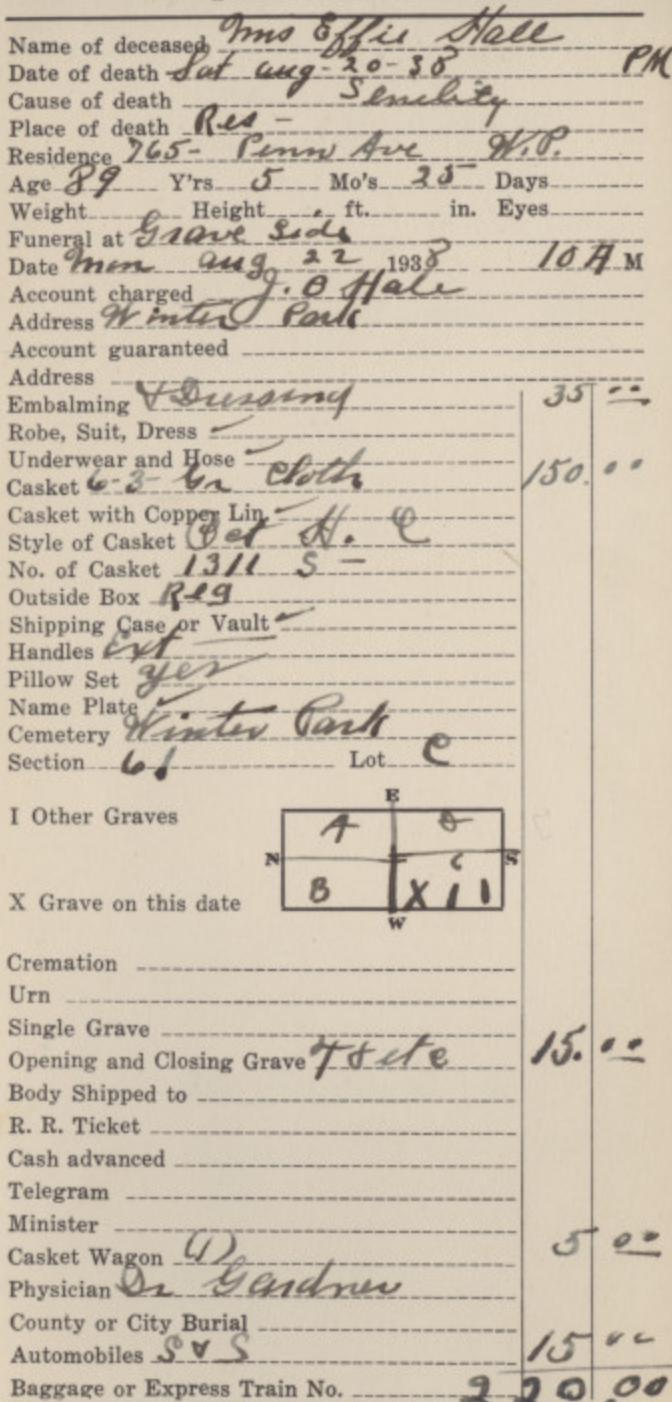 Name of deceased Mrs Effie Hall
Date of death Sat Aug-20-38 PM
Cause of death Senility
Place of death Res -
Residence 765- Penn Ave W.P.
Age 89 Y'rs 5 Mo's 25 Days
Weight Height ft. in. Eyes
Funeral at Grave Side
Date Mon Aug 22 1938 10 A M
Account charged J. B Hall
Address Winter Park
Account guaranteed
Address
Embalming & Dressing 35 00
Robe, Suit, Dress
Underwear and Hose
Casket 6-3 Gr Cloth 150. 00
Casket with Copper Lin
Style of Casket Oct H. C
No. of Casket 1311 S -
Outside Box Reg
Shipping Case or Vault
Handles Ext
Pillow Set yes
Name Plate
Cemetery Winter Park
Section 61 Lot C
I Other Graves
E
A D
N S
C
B X I I
X Grave on this date
W
Cremation
Urn
Single Grave
Opening and Closing Grave 15. 00
Body Shipped to
R. R. Ticket
Cash advanced
Telegram
Minister
Casket Wagon (1) 5 00
Physician Dr Gardner
County or City Burial
Automobiles S & S 15 00
Baggage or Express Train No. 220.00